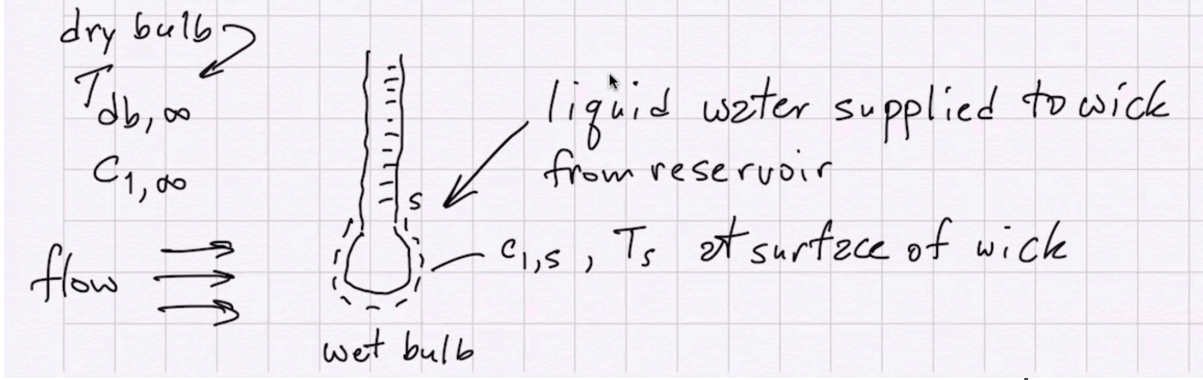 dry bulb
T db,∞
C 1,∞
flow
liquid water supplied to wick
from reservoir
s
c1,s , Ts at surface of wick
wet bulb